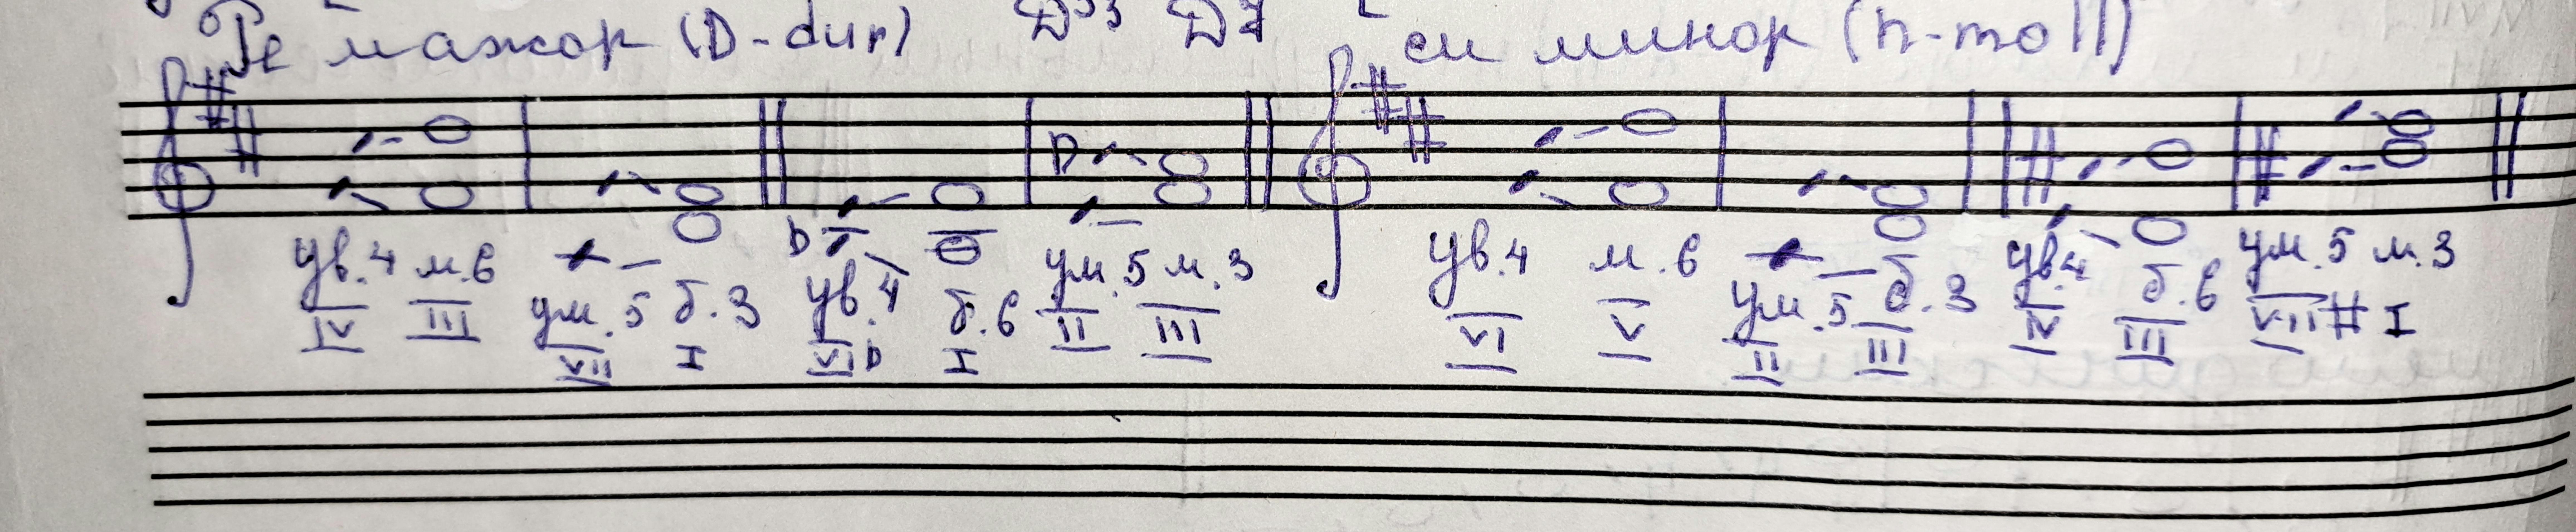 Ре мажор (D-dur) Д53 Д7 си минор (h-moll)
ув.4 м.6 ум.5 б.3 ув.4 б.6 ум.5 м.3 ув.4 м.6 ум.5 б.3 ув.4 б.6 ум.5 м.3
IV III VII I VIb I II III VI V II III IV III VII# I